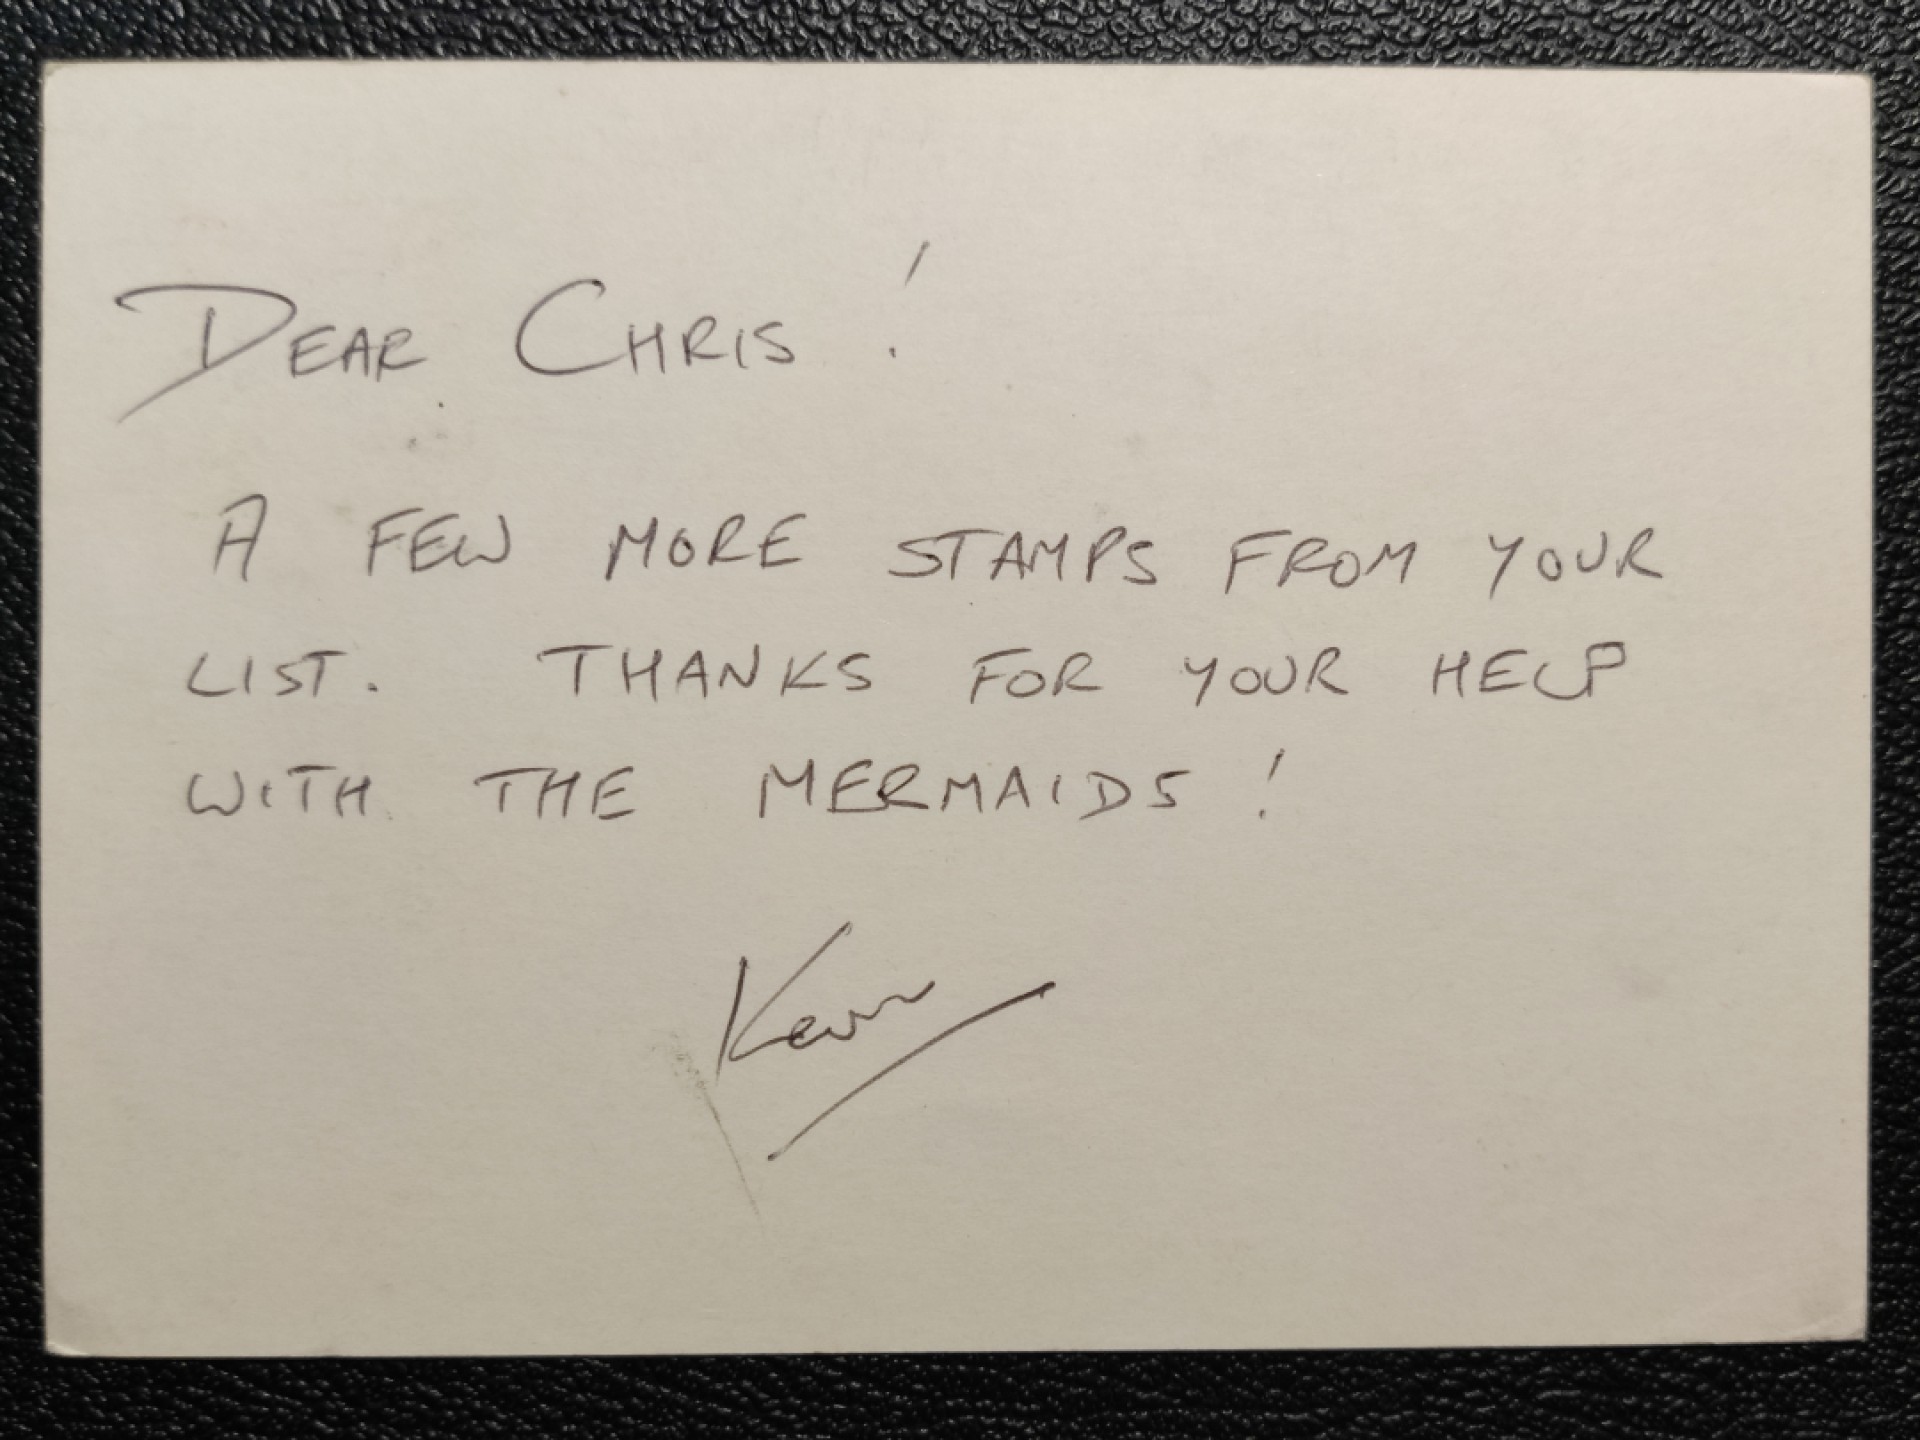 DEAR CHRIS !
A FEW MORE STAMPS FROM YOUR
LIST. THANKS FOR YOUR HELP
WITH THE MERMAIDS !
Kevin